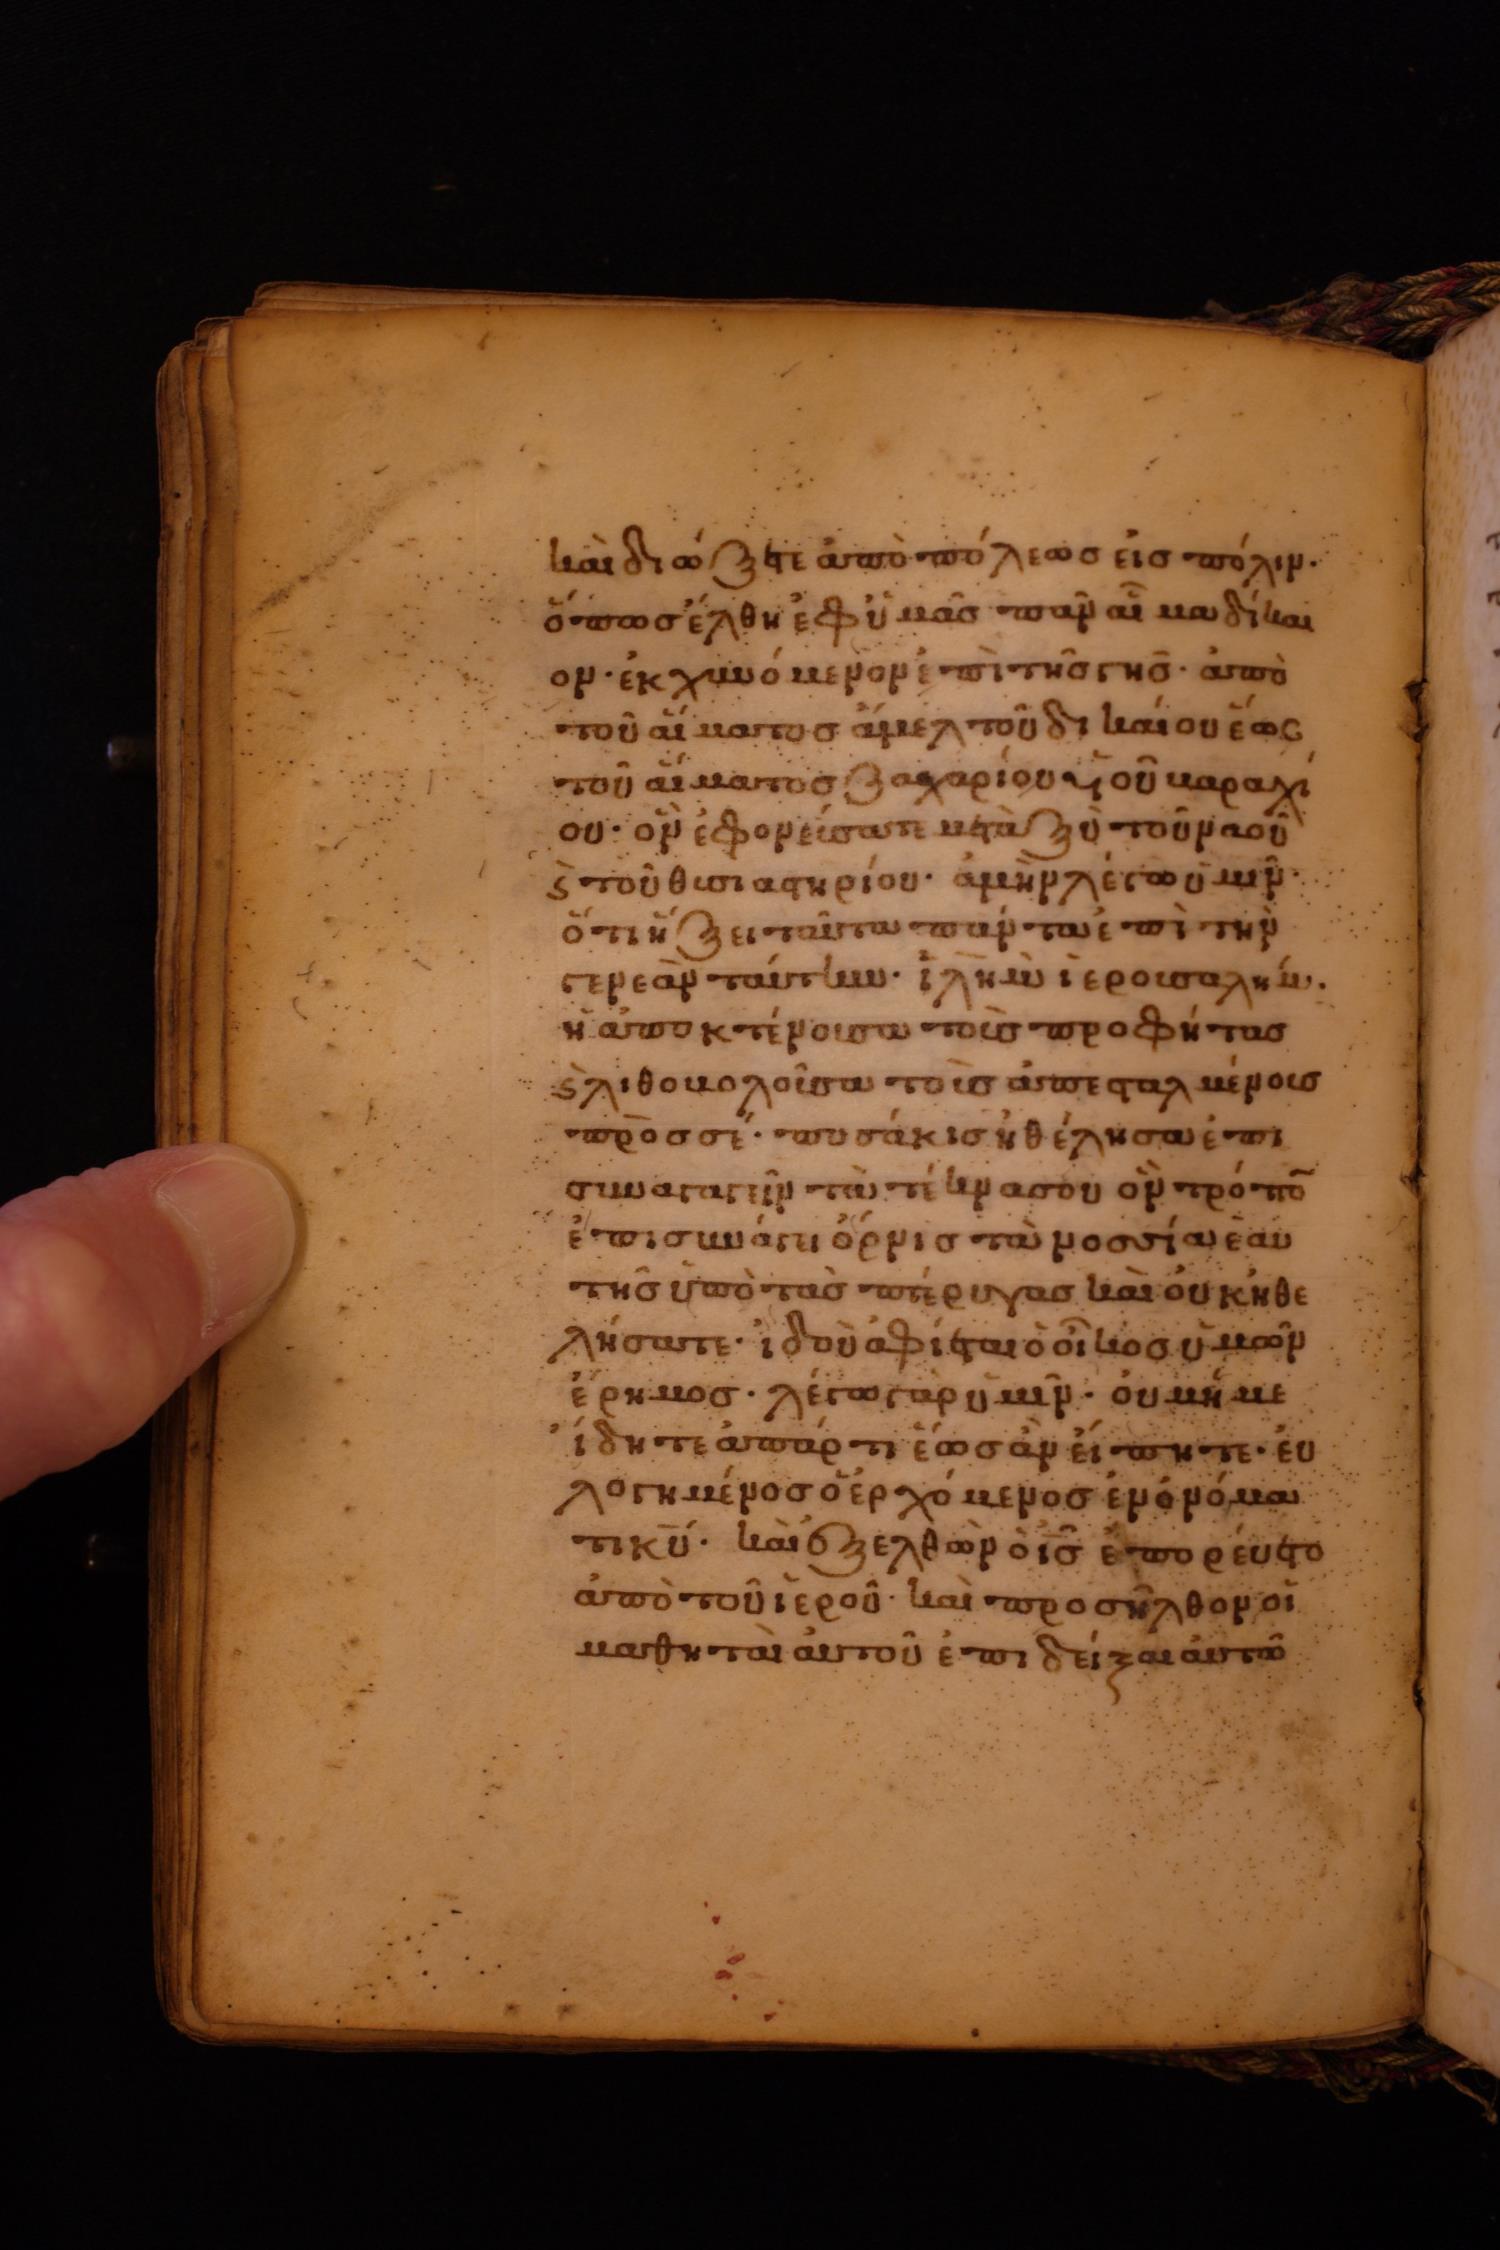 καὶ διώξετε ἀπὸ πόλεως εἰς πόλιν·
ὅπως ἔλθη ἐφ ὑμᾶς πᾶν αἷμα δίκαι
ον· ἐκχυνόμενον ἐπὶ τῆς γῆς· ἀπὸ
τοῦ αἵματος ἄμελ τοῦ δικαίου ἕως
τοῦ αἵματος ζαχαρίου ϋοῦ βαραχί
ου· ὃν ἐφονεύσατε μεταξὺ τοῦ ναοῦ
ϗ τοῦ θυσιαστηρίου· ἀμὴν λέγω ὑμῖν·
ὅτι ἥξει ταῦτα πάντα ἐπὶ τὴν
γενεὰν ταύτην· ἰλὴμ ἰερουσαλήμ·
ἡ ἀποκτένουσα τοὺς προφήτας
ϗ λιθοβολοῦσα τοὺς ἀπεσταλμένους
πρὸς σέ· ποσάκις ἠθέλησα ἐπι
συναγαγεῖν τὰ τέκνα σου ὃν τρόπο̅
ἐπισυνάγει ὄρνις τὰ νοσσία ἑαυ
τῆς ὑπὸ τὰς πτέρυγας καὶ οὐκ ἠθε
λήσατε· ἰδοὺ ἀφίεται ὁ οἶκος ὑμῶν
ἔρημος· λέγω γὰρ ὑμῖν· οὐ μή με
ἴδητε ἀπάρτι ἕως ἂν εἴπητε· εὐ
λογημένος ὁ ἐρχόμενος ἐν ὀνόμα
τι κυ· καὶ ἐξελθὼν ὁ ις ἐπορεύετο
ἀπὸ τοῦ ἱεροῦ· καὶ προσῆλθον οἱ
μαθηταὶ αὐτοῦ ἐπιδεῖξαι αὐτῶ